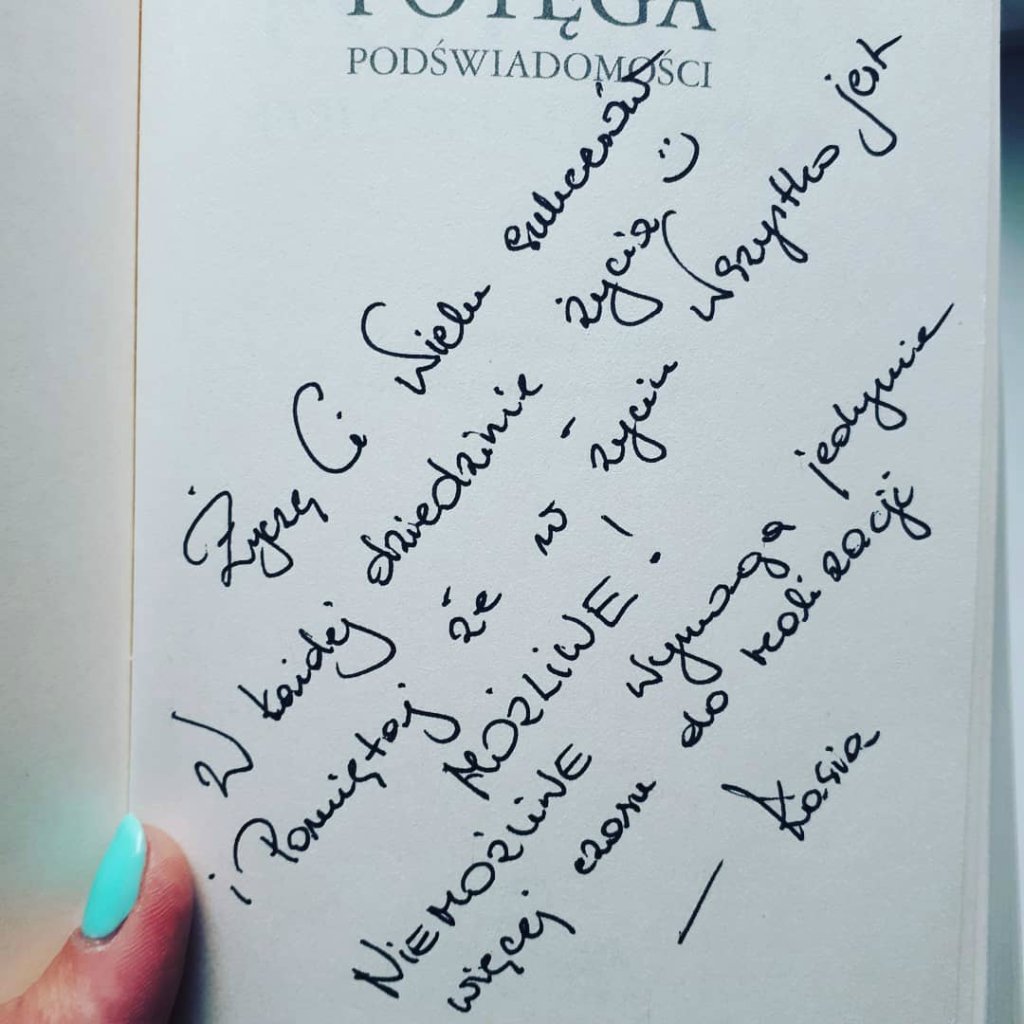 POTĘGA
PODŚWIADOMOŚCI
Życzę Ci Wielu sukcesów
W każdej dziedzinie życia :)
i Pamiętaj że w życiu Wszystko jest
MOŻLIWE!
NIEMOŻLIWE wymaga jedynie
więcej czasu do realizacji
— Kasia